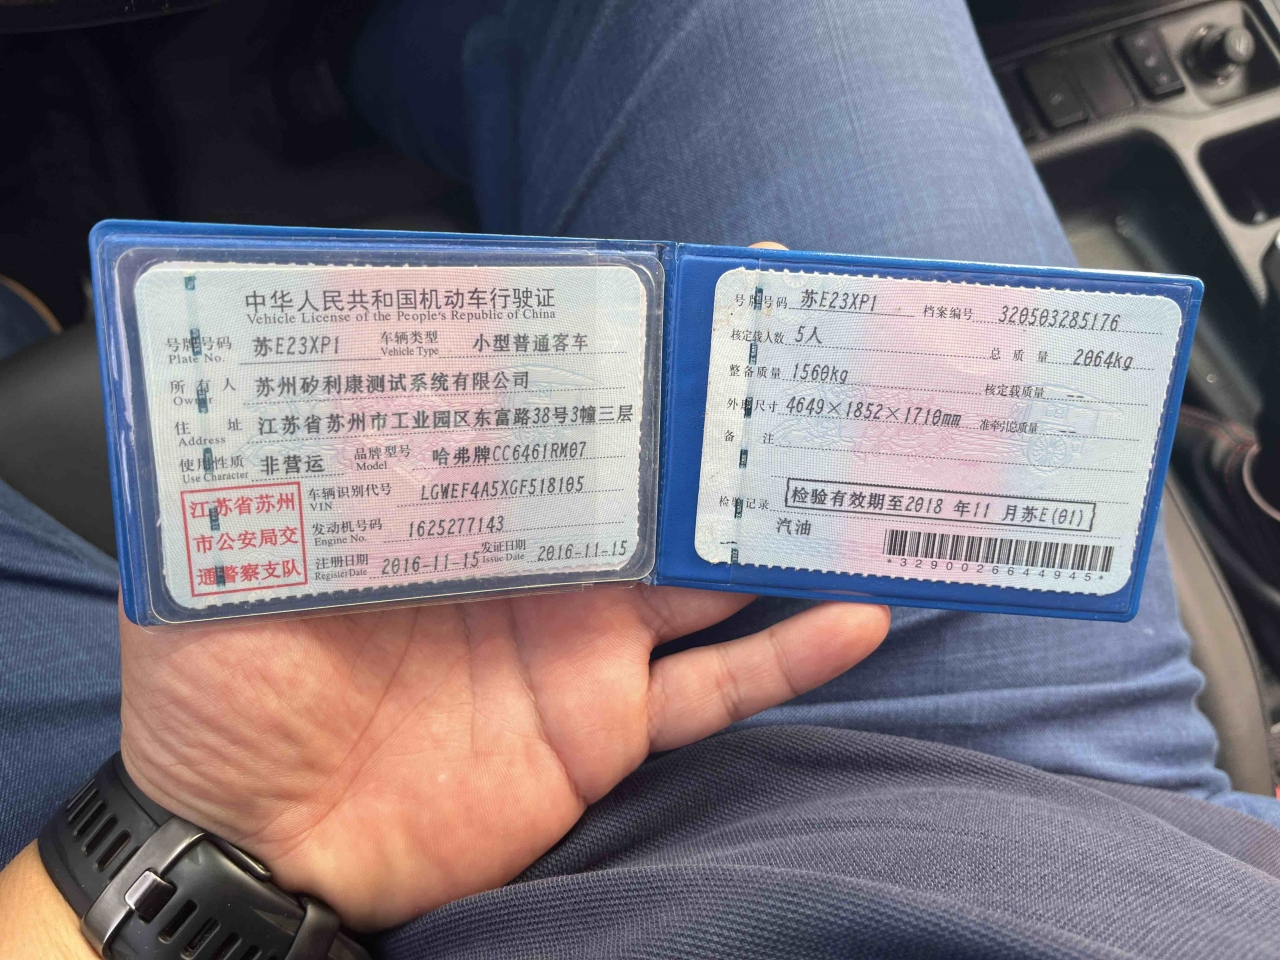 中华人民共和国机动车行驶证
Vehicle License of the People's Republic of China
号牌号码 苏E23XP1 车辆类型 小型普通客车
Plate No. Vehicle Type
所有人 苏州矽利康测试系统有限公司
Owner
住址 江苏省苏州市工业园区东富路38号3幢三层
Address
使用性质 非营运 品牌型号 哈弗牌CC6461RM07
Use Character Model
江苏省苏州
市公安局交
通警察支队
车辆识别代号 LGWEF4A5XGF518105
VIN
发动机号码 1625277143
Engine No.
注册日期 2016-11-15 发证日期 2016-11-15
Register Date Issue Date
号牌号码 苏E23XP1 档案编号 320503285176
核定载人数 5人 总质量 2064kg
整备质量 1560kg 核定载质量 --
外廓尺寸 4649×1852×1710mm 准牵引总质量 --
备注
检验记录 检验有效期至2018 年11 月苏E(01)
汽油
*3290026644945*